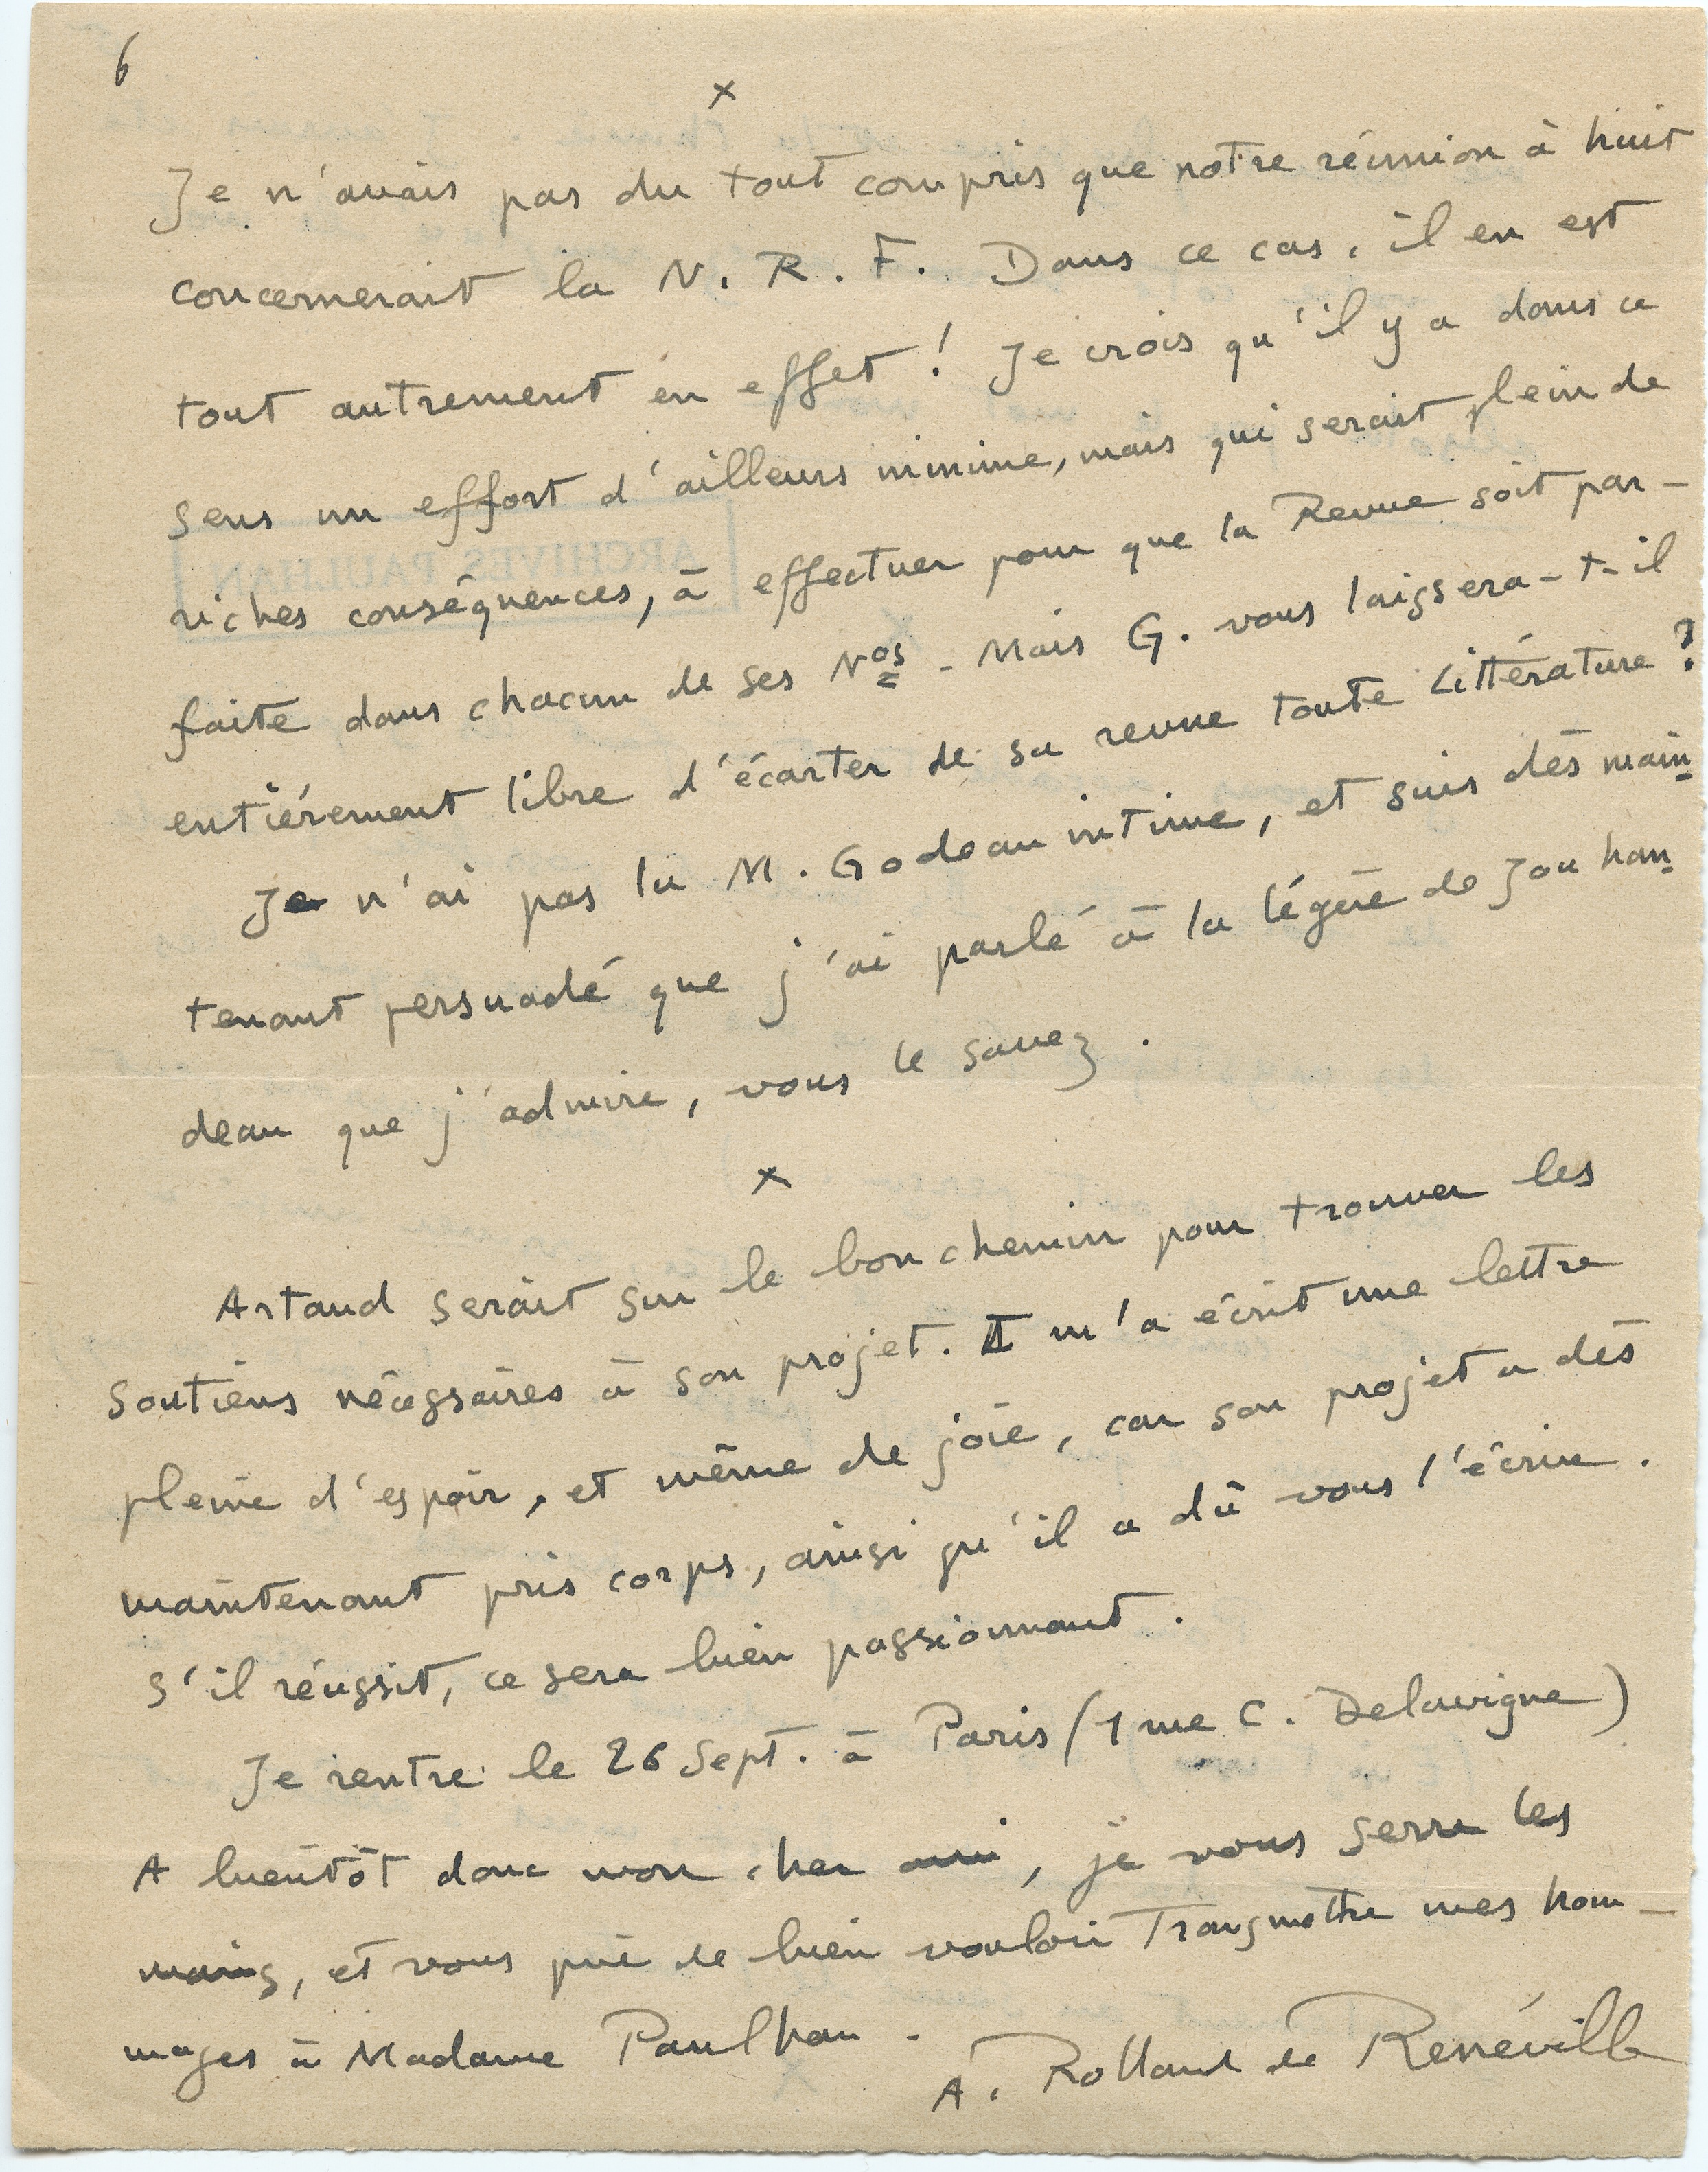 6
x
Je n'avais pas du tout compris que notre réunion à huit
concernerait la N. R. F. Dans ce cas, il en est
tout autrement en effet ! Je crois qu'il y a dans ce
sens un effort d'ailleurs minime, mais qui serait plein de
riches conséquences, à effectuer pour que la Revue soit par-
faite dans chacun de ses Nos - Mais G. vous laissera-t-il
entièrement libre d'écarter de sa revue toute Littérature ?
Je n'ai pas lu M. Godeau intime, et suis dès main-
tenant persuadé que j'ai parlé à la légère de Jouhan-
deau que j'admire, vous le savez.
x
Artaud serait sur le bon chemin pour trouver les
soutiens nécessaires à son projet. Il m'a écrit une lettre
pleine d'espoir, et même de joie, car son projet a dès
maintenant pris corps, ainsi qu'il a dû vous l'écrire.
S'il réussit, ce sera bien passionnant.
Je rentre le 26 Sept. à Paris (1 rue C. Delavigne)
A bientôt donc mon cher ami, je vous serre les
mains, et vous prie de bien vouloir Transmettre mes hom-
mages à Madame Paulhan.
A. Rolland de Renéville
ARCHIVES PAULHAN